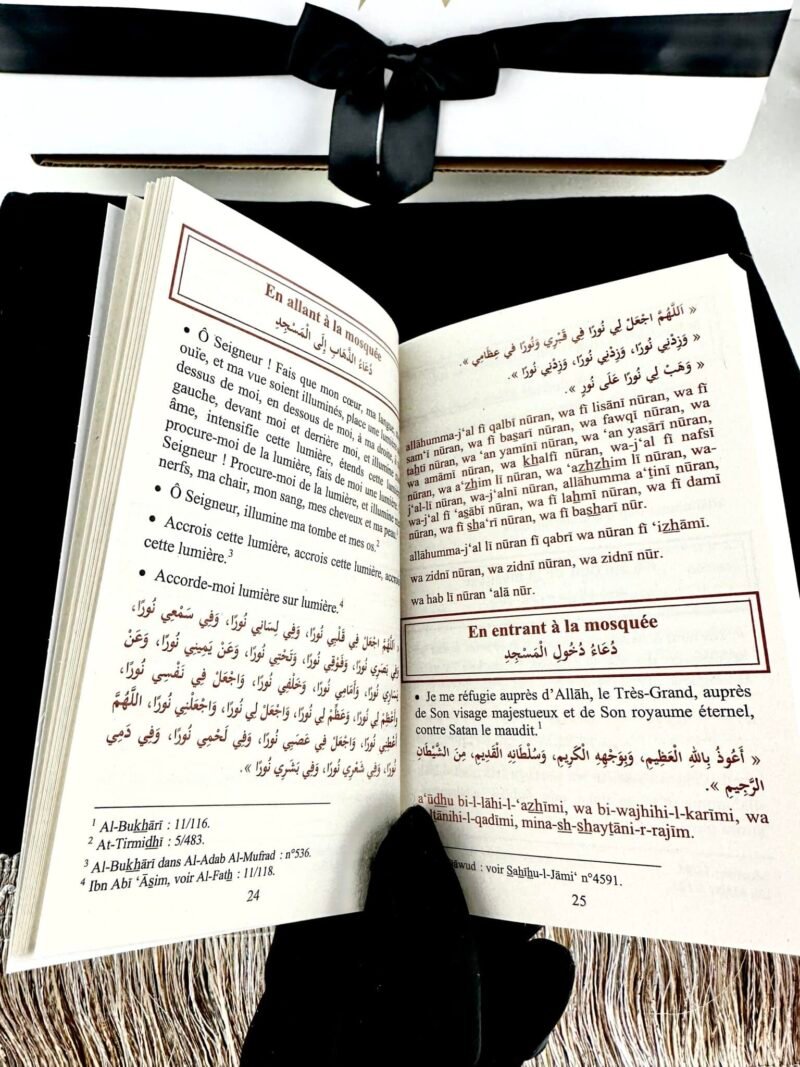 En allant à la mosquée
دُعَاءُ الذَّهَابِ إِلَى الْمَسْجِدِ
• Ô Seigneur ! Fais que mon cœur, ma langue,
ouïe, et ma vue soient illuminés, place une lumière
dessus de moi, en dessous de moi, à ma droite, à
gauche, devant moi et derrière moi, et illumine
âme, intensifie cette lumière, étends cette lumière
procure-moi de la lumière, fais de moi une lumière
Seigneur ! Procure-moi de la lumière, et illumine mes
nerfs, ma chair, mon sang, mes cheveux et ma peau.
• Ô Seigneur, illumine ma tombe et mes os.²
• Accrois cette lumière, accrois cette lumière,
cette lumière.³
• Accorde-moi lumière sur lumière.⁴
« اللَّهُمَّ اجْعَلْ فِي قَلْبِي نُورًا، وَفِي لِسَانِي نُورًا، وَفِي سَمْعِي نُورًا،
وَفِي بَصَرِي نُورًا، وَفَوْقِي نُورًا، وَتَحْتِي نُورًا، وَعَنْ يَمِينِي نُورًا، وَعَنْ
يَسَارِي نُورًا، وَأَمَامِي نُورًا، وَخَلْفِي نُورًا، وَاجْعَلْ فِي نَفْسِي نُورًا،
وَأَعْظِمْ لِي نُورًا، وَعَظِّمْ لِي نُورًا، وَاجْعَلْ لِي نُورًا، وَاجْعَلْنِي نُورًا، اللَّهُمَّ
أَعْطِنِي نُورًا، وَاجْعَلْ فِي عَصَبِي نُورًا، وَفِي لَحْمِي نُورًا، وَفِي دَمِي
نُورًا، وَفِي شَعْرِي نُورًا، وَفِي بَشَرِي نُورًا ».
¹ Al-Bukhārī : 11/116.
² At-Tirmidhī : 5/483.
³ Al-Bukhārī dans Al-Adab Al-Mufrad : n°536.
⁴ Ibn Abī ‘Āṣim, voir Al-Fatḥ : 11/118.
24
« اَللَّهُمَّ اجْعَلْ لِي نُورًا فِي قَبْرِي وَنُورًا فِي عِظَامِي ».
« وَزِدْنِي نُورًا، وَزِدْنِي نُورًا، وَزِدْنِي نُورًا ».
« وَهَبْ لِي نُورًا عَلَى نُورٍ ».
allāhumma-j‘al fī qalbī nūran, wa fī lisānī nūran, wa fī
sam‘ī nūran, wa fī baṣarī nūran, wa fawqī nūran, wa
taḥtī nūran, wa ‘an yamīnī nūran, wa ‘an yasārī nūran,
wa amāmī nūran, wa khalfī nūran, wa-j‘al fī nafsī
nūran, wa a‘zhim lī nūran, wa ‘azhzhim lī nūran, wa-
j‘al-lī nūran, wa-j‘alnī nūran, allāhumma a‘ṭinī nūran,
wa-j‘al fī ‘aṣabī nūran, wa fī laḥmī nūran, wa fī damī
nūran, wa fī sha‘rī nūran, wa fī basharī nūr.
allāhumma-j‘al lī nūran fī qabrī wa nūran fī ‘izhāmī.
wa zidnī nūran, wa zidnī nūran, wa zidnī nūr.
wa hab lī nūran ‘alā nūr.
En entrant à la mosquée
دُعَاءُ دُخُولِ الْمَسْجِدِ
• Je me réfugie auprès d’Allāh, le Très-Grand, auprès
de Son visage majestueux et de Son royaume éternel,
contre Satan le maudit.¹
« أَعُوذُ بِاللهِ الْعَظِيمِ، وَبِوَجْهِهِ الْكَرِيمِ، وَسُلْطَانِهِ الْقَدِيمِ، مِنَ الشَّيْطَانِ
الرَّجِيمِ »
a‘ūdhu bi-l-lāhi-l-‘azhīmi, wa bi-wajhihi-l-karīmi, wa
ṭānihi-l-qadīmi, mina-sh-shayṭāni-r-rajīm.
āwud : voir Ṣaḥīḥu-l-Jāmi‘ n°4591.
25